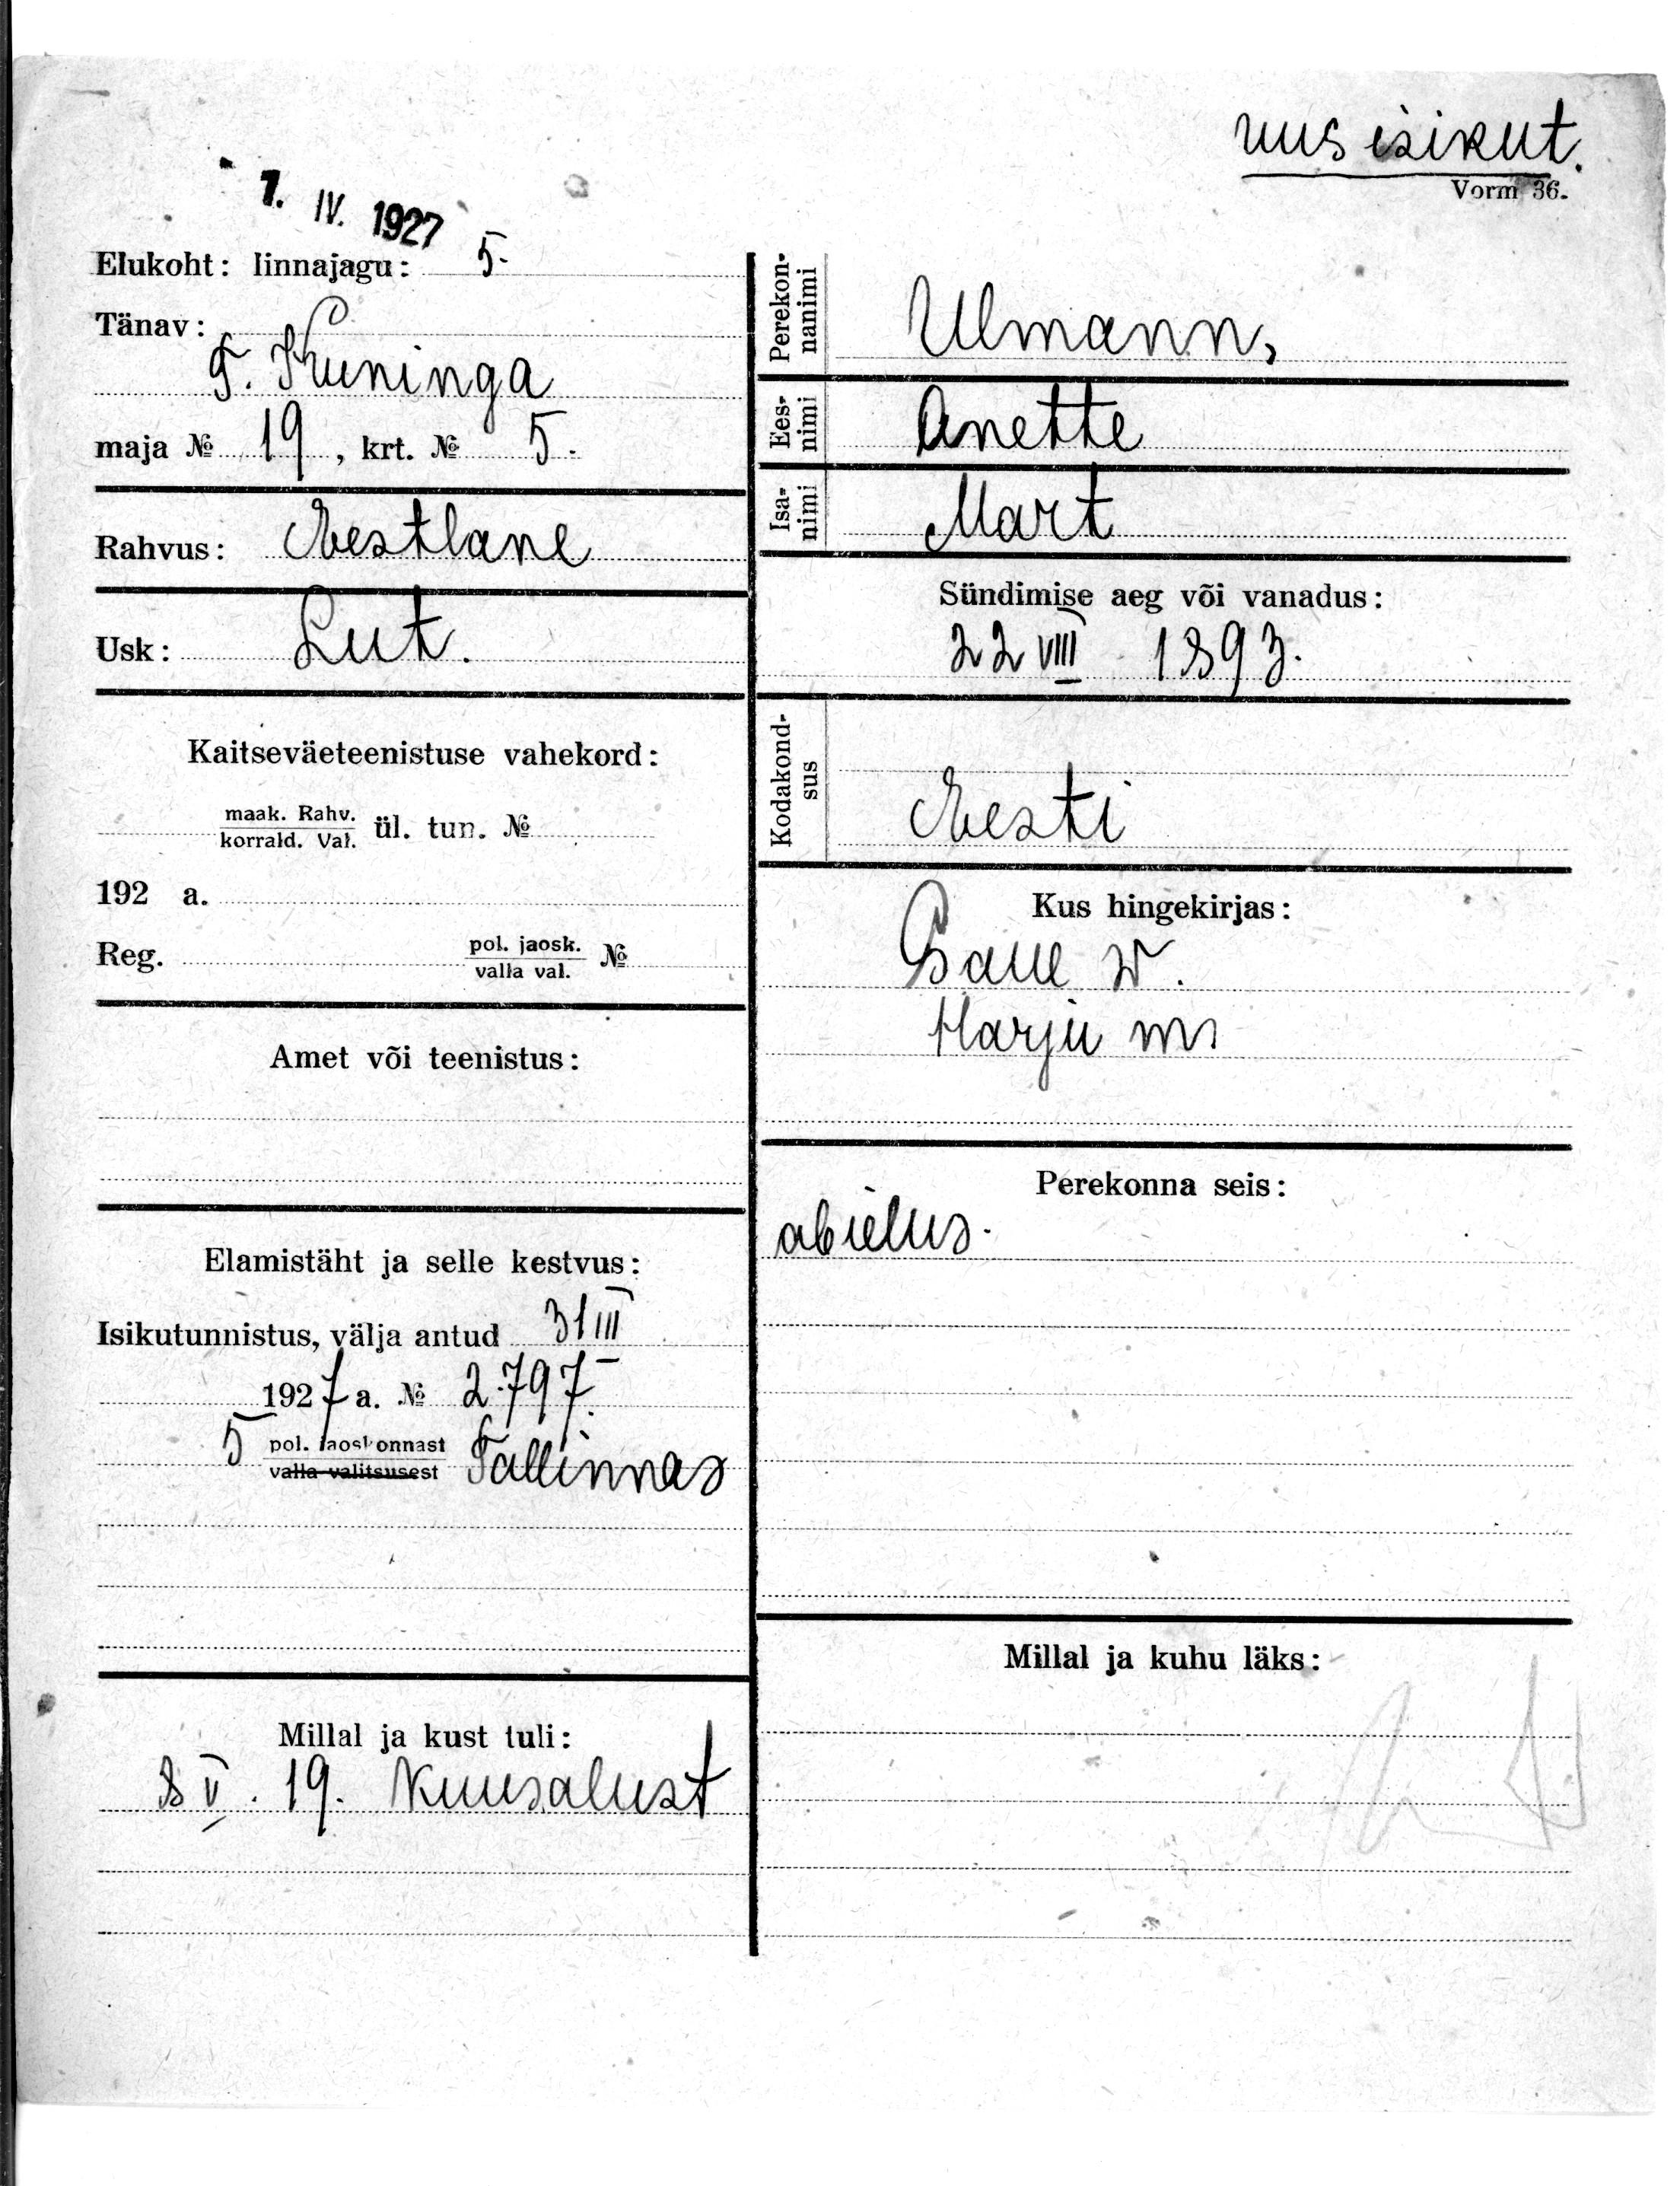 uus isikut.
Vorm 36.
7. IV. 1927
Elukoht: linnajagu: 5.
Tänav:
T. Kuninga
maja № 19, krt. № 5.
Rahvus: Eestlane
Usk: Lut.
Kaitseväeteenistuse vahekord:
maak. Rahv.
korrald. Val. ül. tun. №
192 a.
Reg. pol. jaosk. №
valla val.
Amet või teenistus:
Elamistäht ja selle kestvus:
Isikutunnistus, välja antud 31 III
1927 a. № 2.797.
5 pol. jaoskonnast Tallinnas
valla valitsusest
Millal ja kust tuli:
8 V. 19. Kuusalust
Perekon-
nanimi
Ulmann,
Ees-
nimi
Anette
Isa-
nimi
Mart
Sündimise aeg või vanadus:
22 VIII 1893.
Kodakond-
sus
Eesti
Kus hingekirjas:
W.
Harju m.
Perekonna seis:
abielus.
Millal ja kuhu läks: